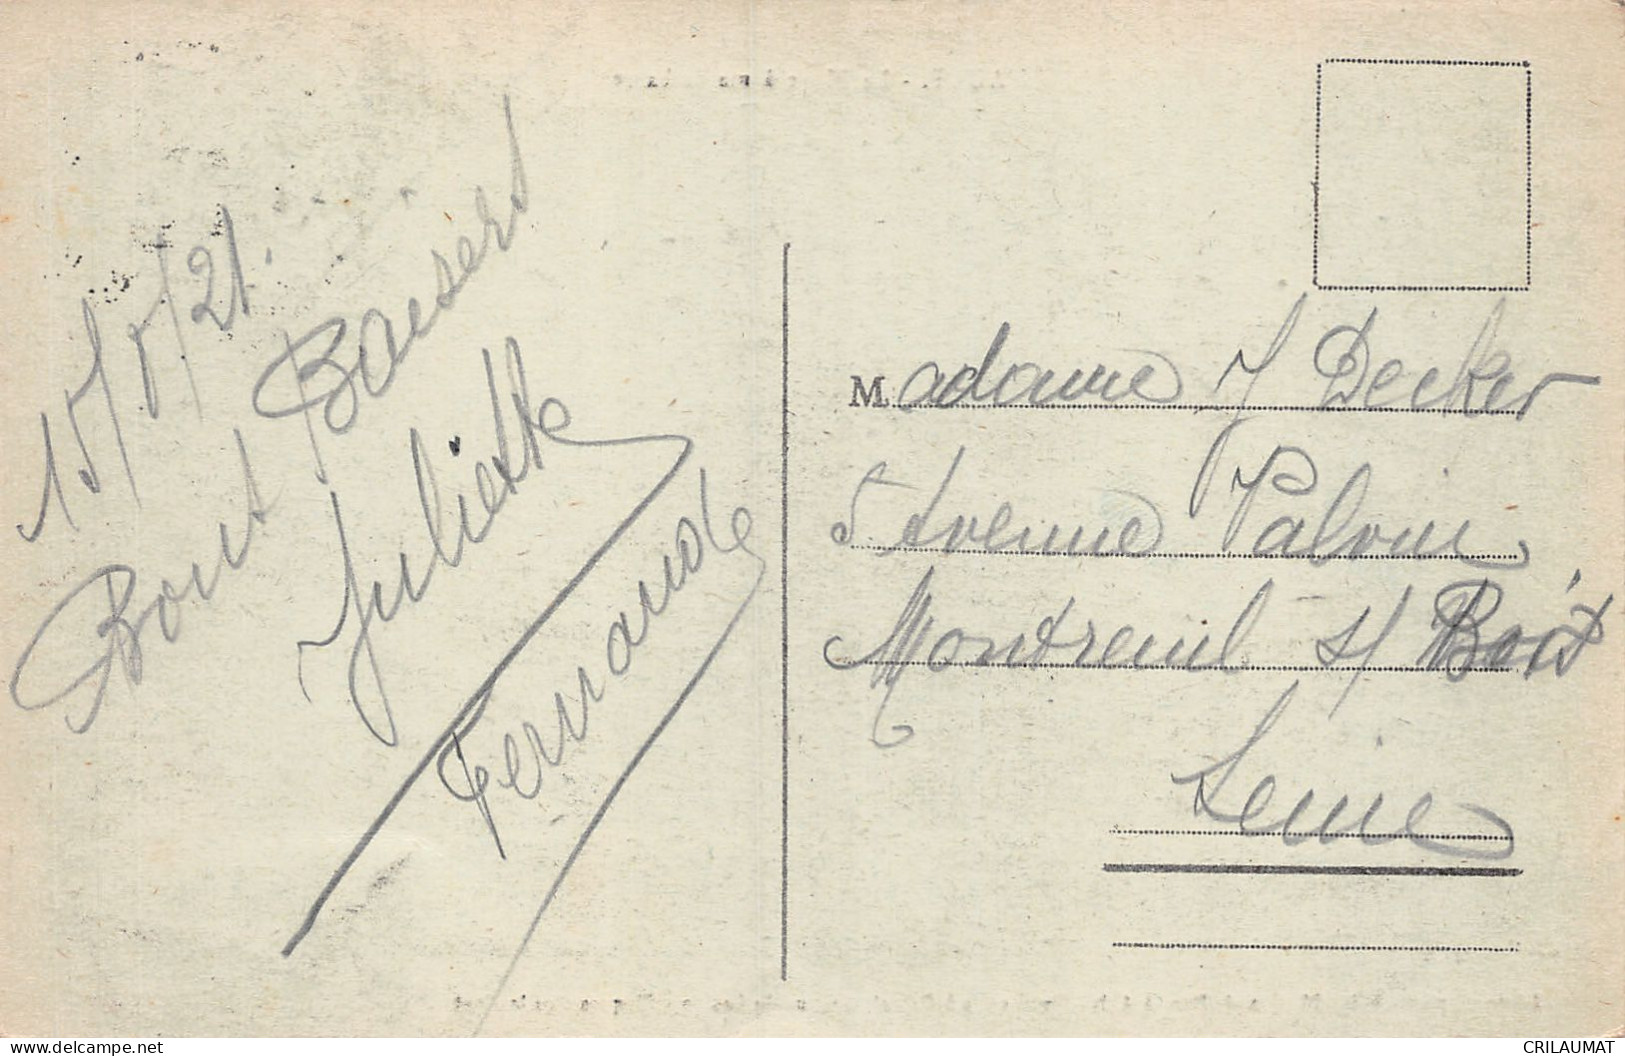 15/8/21.
Bons Baisers
Juliette
Fernande
Madame J Decker
5 Avenue
Montreuil s/ Bois
Seine
www.delcampe.net
CRILAUMAT